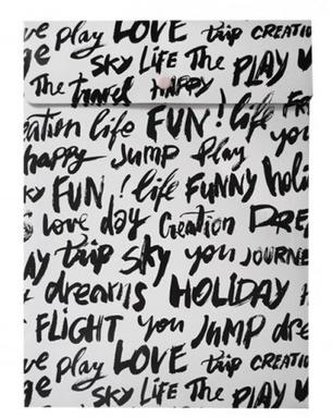 ve play LOVE trip CREATIO
ge SKY LIFE The PLAY
The travel HAPPY
eation life FUN! life FR
happy Jump Play you
KY FUN! life FUNNY holi
S Love day Creation DRE
AY trip sky you JOURNE
dreams HOLIDAY
FLIGHT you JUMP dre
ve play LOVE trip CREATIO
ge SKY LIFE The PLAY